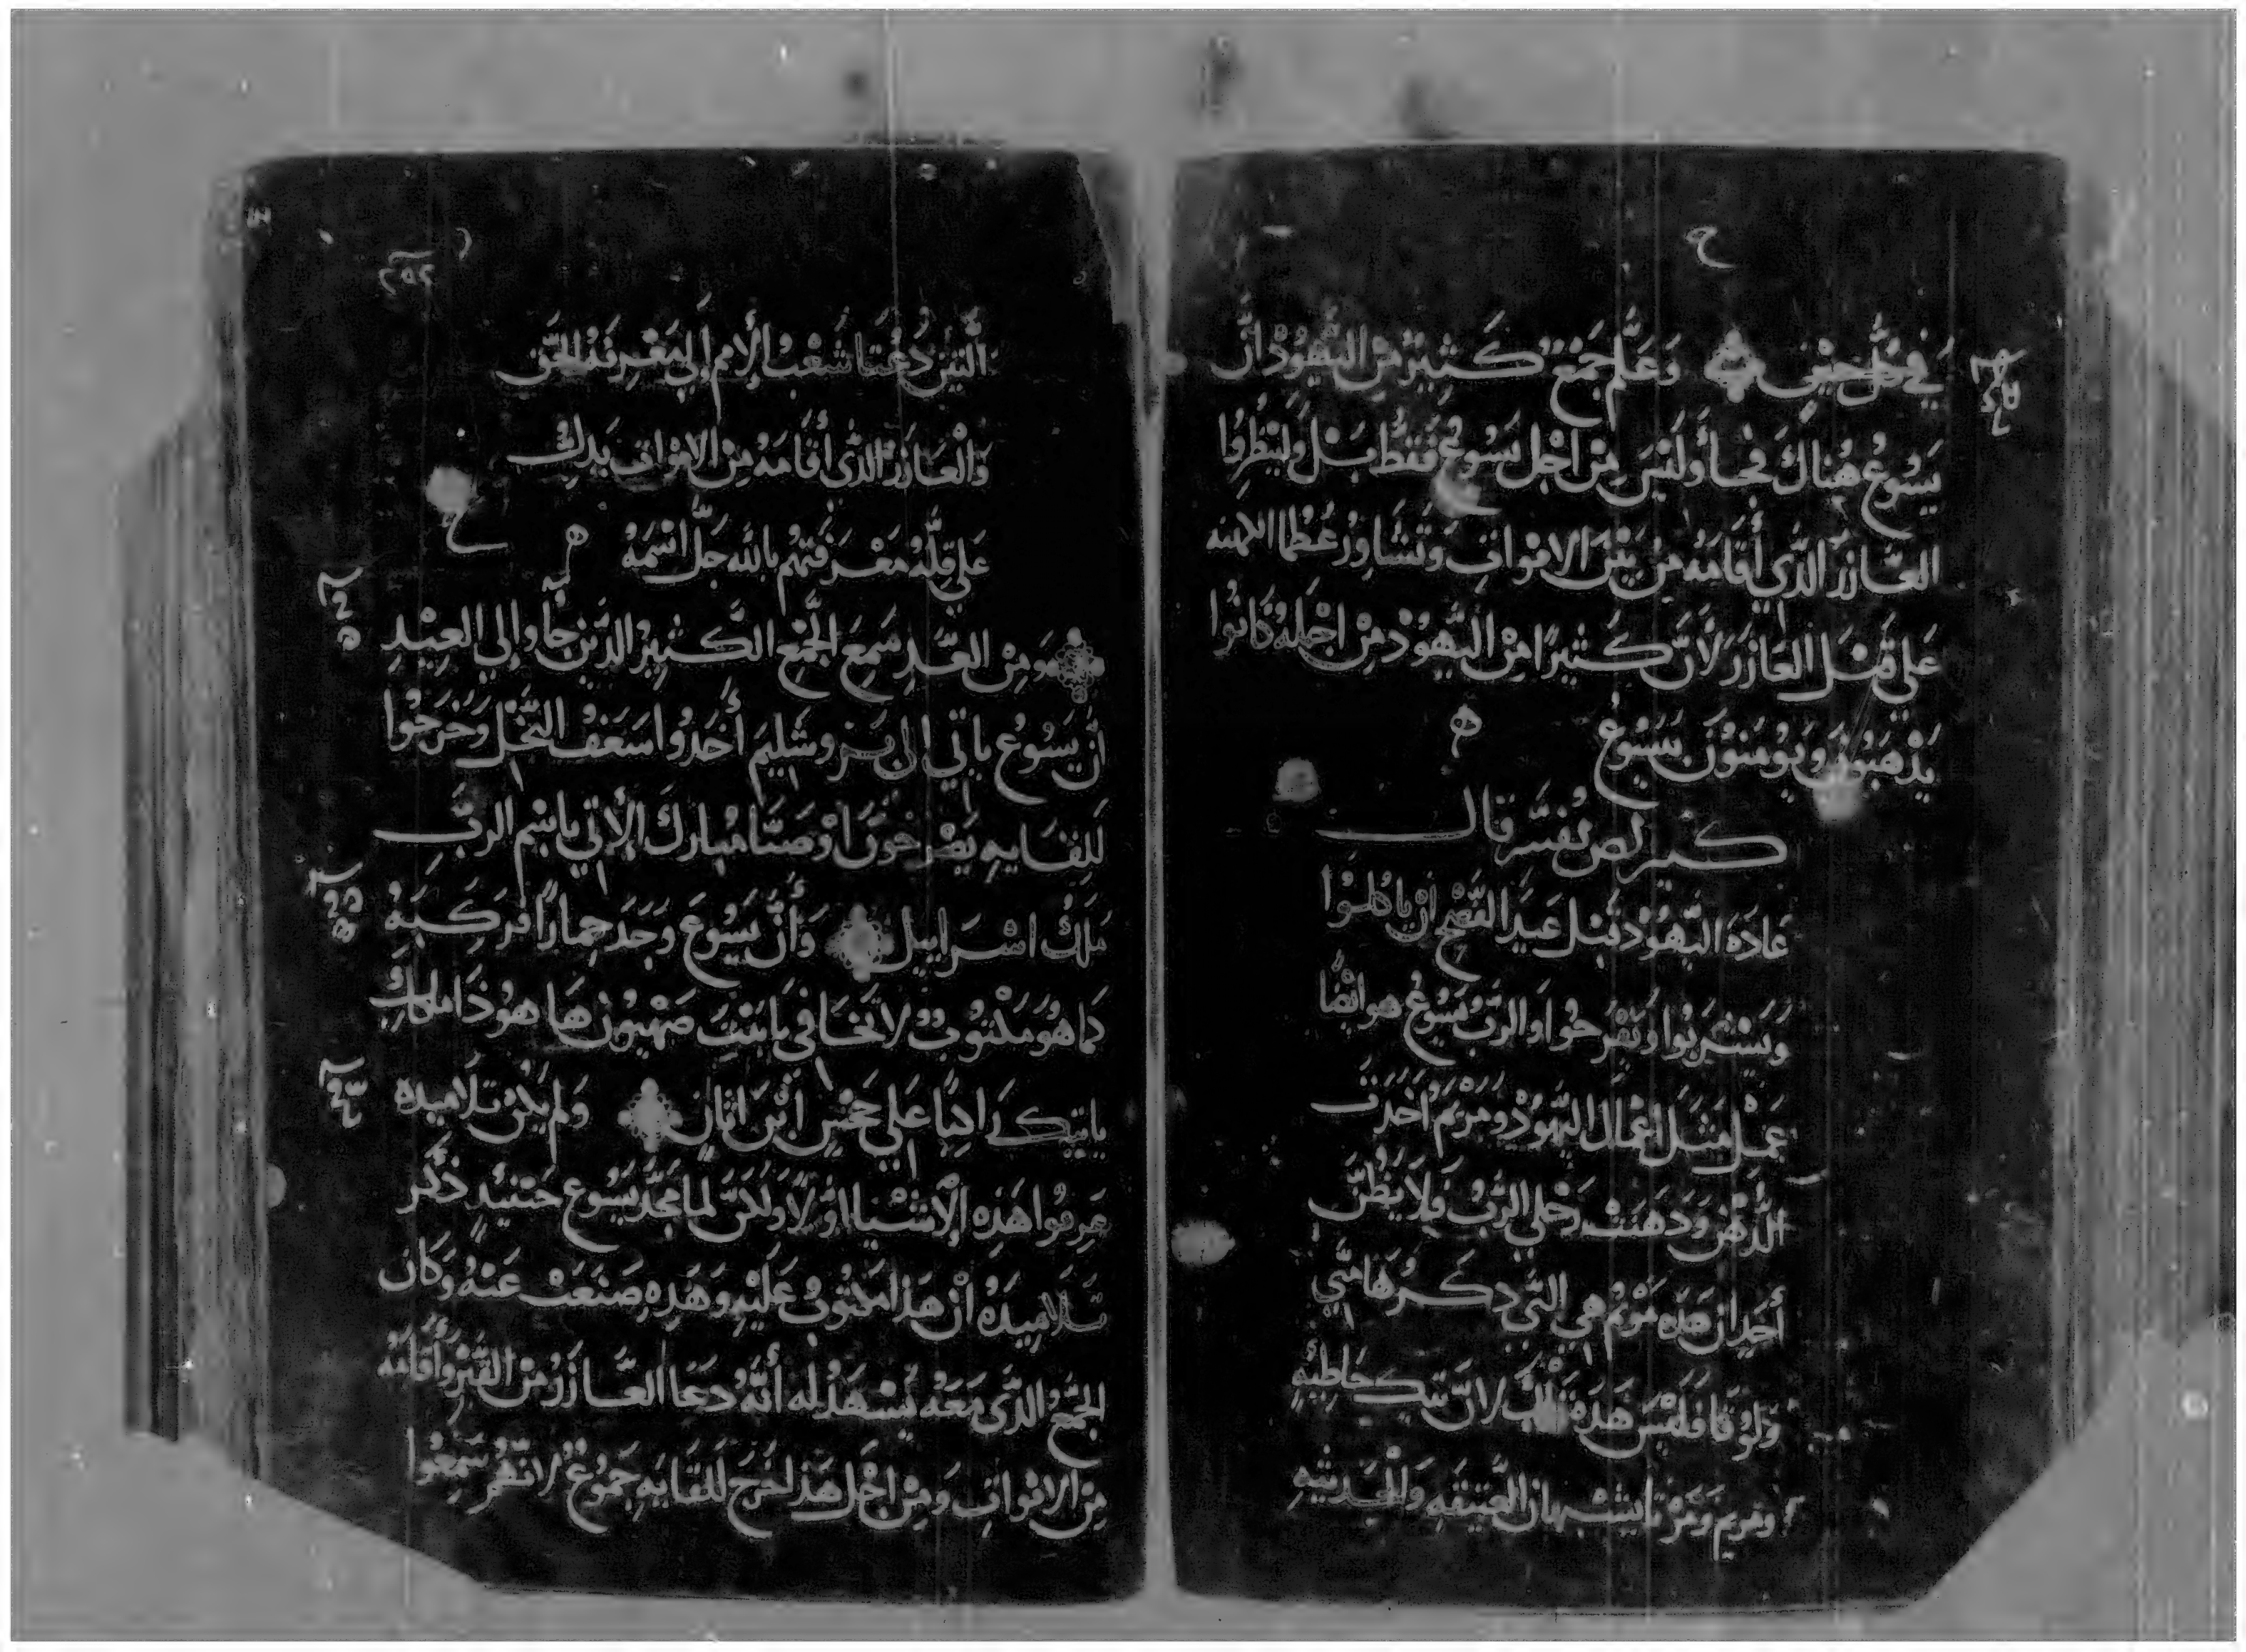 في كل حين وَعَلَم جَمْع كَثير مِن اليَهُودْ أَن
يَسُوعُ هُناكَ فجاأو لَيسَ مِن اجْل يَسُوعُ فَقَط بَل وَليَنْظرُوا
العَازرَ الذّي أَقامَهُ مِن بَيْن الامْواتِ وَتَشاورُ عُظما الكهنه
عَلي قَتْل العَازرَ لأنَّ كَثيرًا مِن اليَهُودْ مِن اجْلِهِ كانُوا
يَذْهَبُون وَيُومِنونَ بيَسُوعُ
تفسير قال
عَادَة اليَهُودْ قَبل عيد الفصْح ان ياكلُوا
وَيَشرَبُوا وَيَفرَحُوا وَالربُ يَسُوعُ هو ايضًا
عَمل مثل اعْمال اليَهُودْ وَمَريَم اخَذت
الدُّهْن وَدَهَنت رجلي الرَّبُ فلا يظُنّ
أحَد ان هَذه مَريَم هي التي ذكرهَا متّي
وَلُوقا فَليسَ هَذِه تلك لانَّ تيك خاطيه
وَمريم وَمَرْتا يشبهان العَتيقه وَالحَديثه
٢٥٢
التين دعتا شعب الأمم إلي مَعْرفه الحَق
وَالعَازر الذي أقامَهُ مِن الامْوات يَدل
عَلي قِلّه مَعْرفَتهُم بالله جَلّ اسْمَهُ
وَمِن الغَد سَمِعَ الجَمْع الكثيرُ الذين جأوا إلي العِيْدِ
أن يَسُوعُ ياتي إلي يروشليم أخذوا سَعَف النخْل وَخَرجُوا
للقايه يَصْرخُونَ اوْصَنّا مُبارك الأتي باسْم الربَّ
مَلك اسْرَاييل وَأنَّ يَسُوعَ وَجَد حِمارًا فرَكبَهُ
كما هُو مَكتُوبٌ لا تخافي يابنت صَهْيون هَا هو ذَا ملكك
ياتيك راكبًا عَلي جَحْش ابْن اتان وَلم يكن تلاميذه
عَرفُوا هَذِه الأشْيا اولاً وَلكن لما مجّدَ يَسُوع حِينئذٍ ذكر
تلاميذه انْ هَذا مَكتُوبٌ عَلَيْهِ وَهَذِه صَنعَت عَنهُ وَكان
الجَمْعُ الذّي مَعَهُ يَشْهَدُ له أنَّهُ دَعَا العَازرَ مِن القَبْرِ وَأقامَهُ
مِن الامْواتِ وَمِن اجْل هَذا خرَج للقايه جَمُوعٌ لانّهُم سَمِعُوا